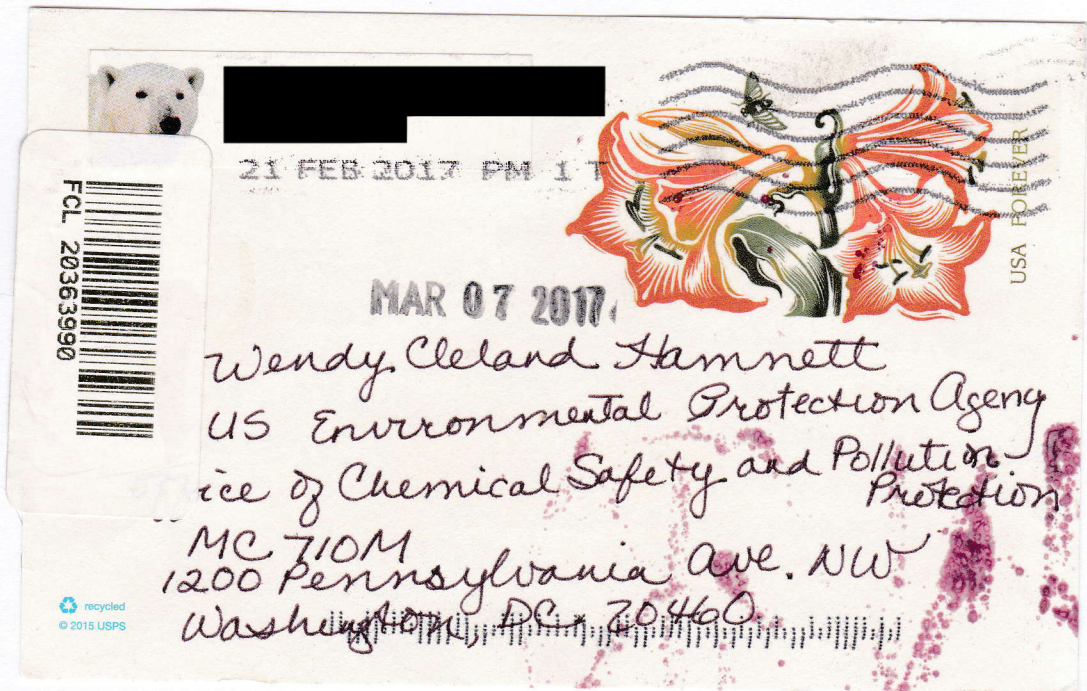 21 FEB 2017 PM 1 T
USA FOREVER
FCL 20363990
MAR 07 2017
Wendy Cleland Hamnett
US Environmental Protection Agency
ice of Chemical Safety and Pollution
Protection
MC 710M
1200 Pennsylvania Ave. NW
Washington, DC 20460
recycled
© 2015 USPS